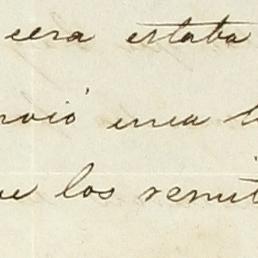 cera estaba
nvió una
ue los remit